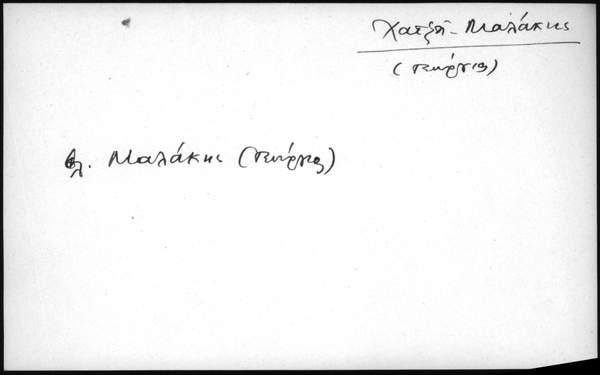 Χατζῆ-Μαλάκης
(Γεώργιος)
βλ. Μαλάκης (Γεώργιος)